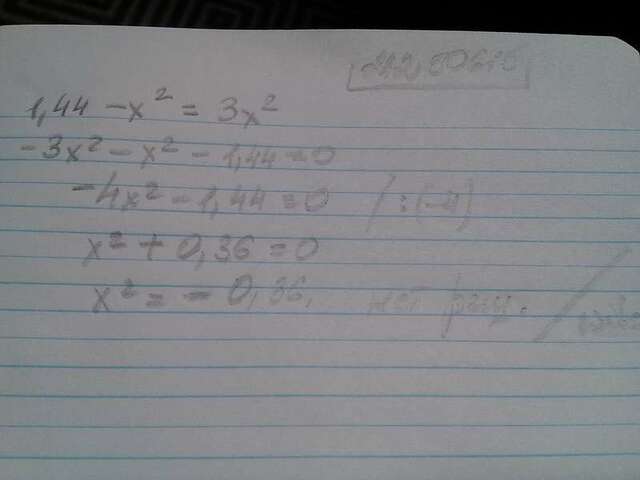 1,44 - x² = 3x²
-3x² - x² - 1,44 = 0
-4x² - 1,44 = 0 / : (-4)
x² + 0,36 = 0
x² = - 0,36, нет реш.